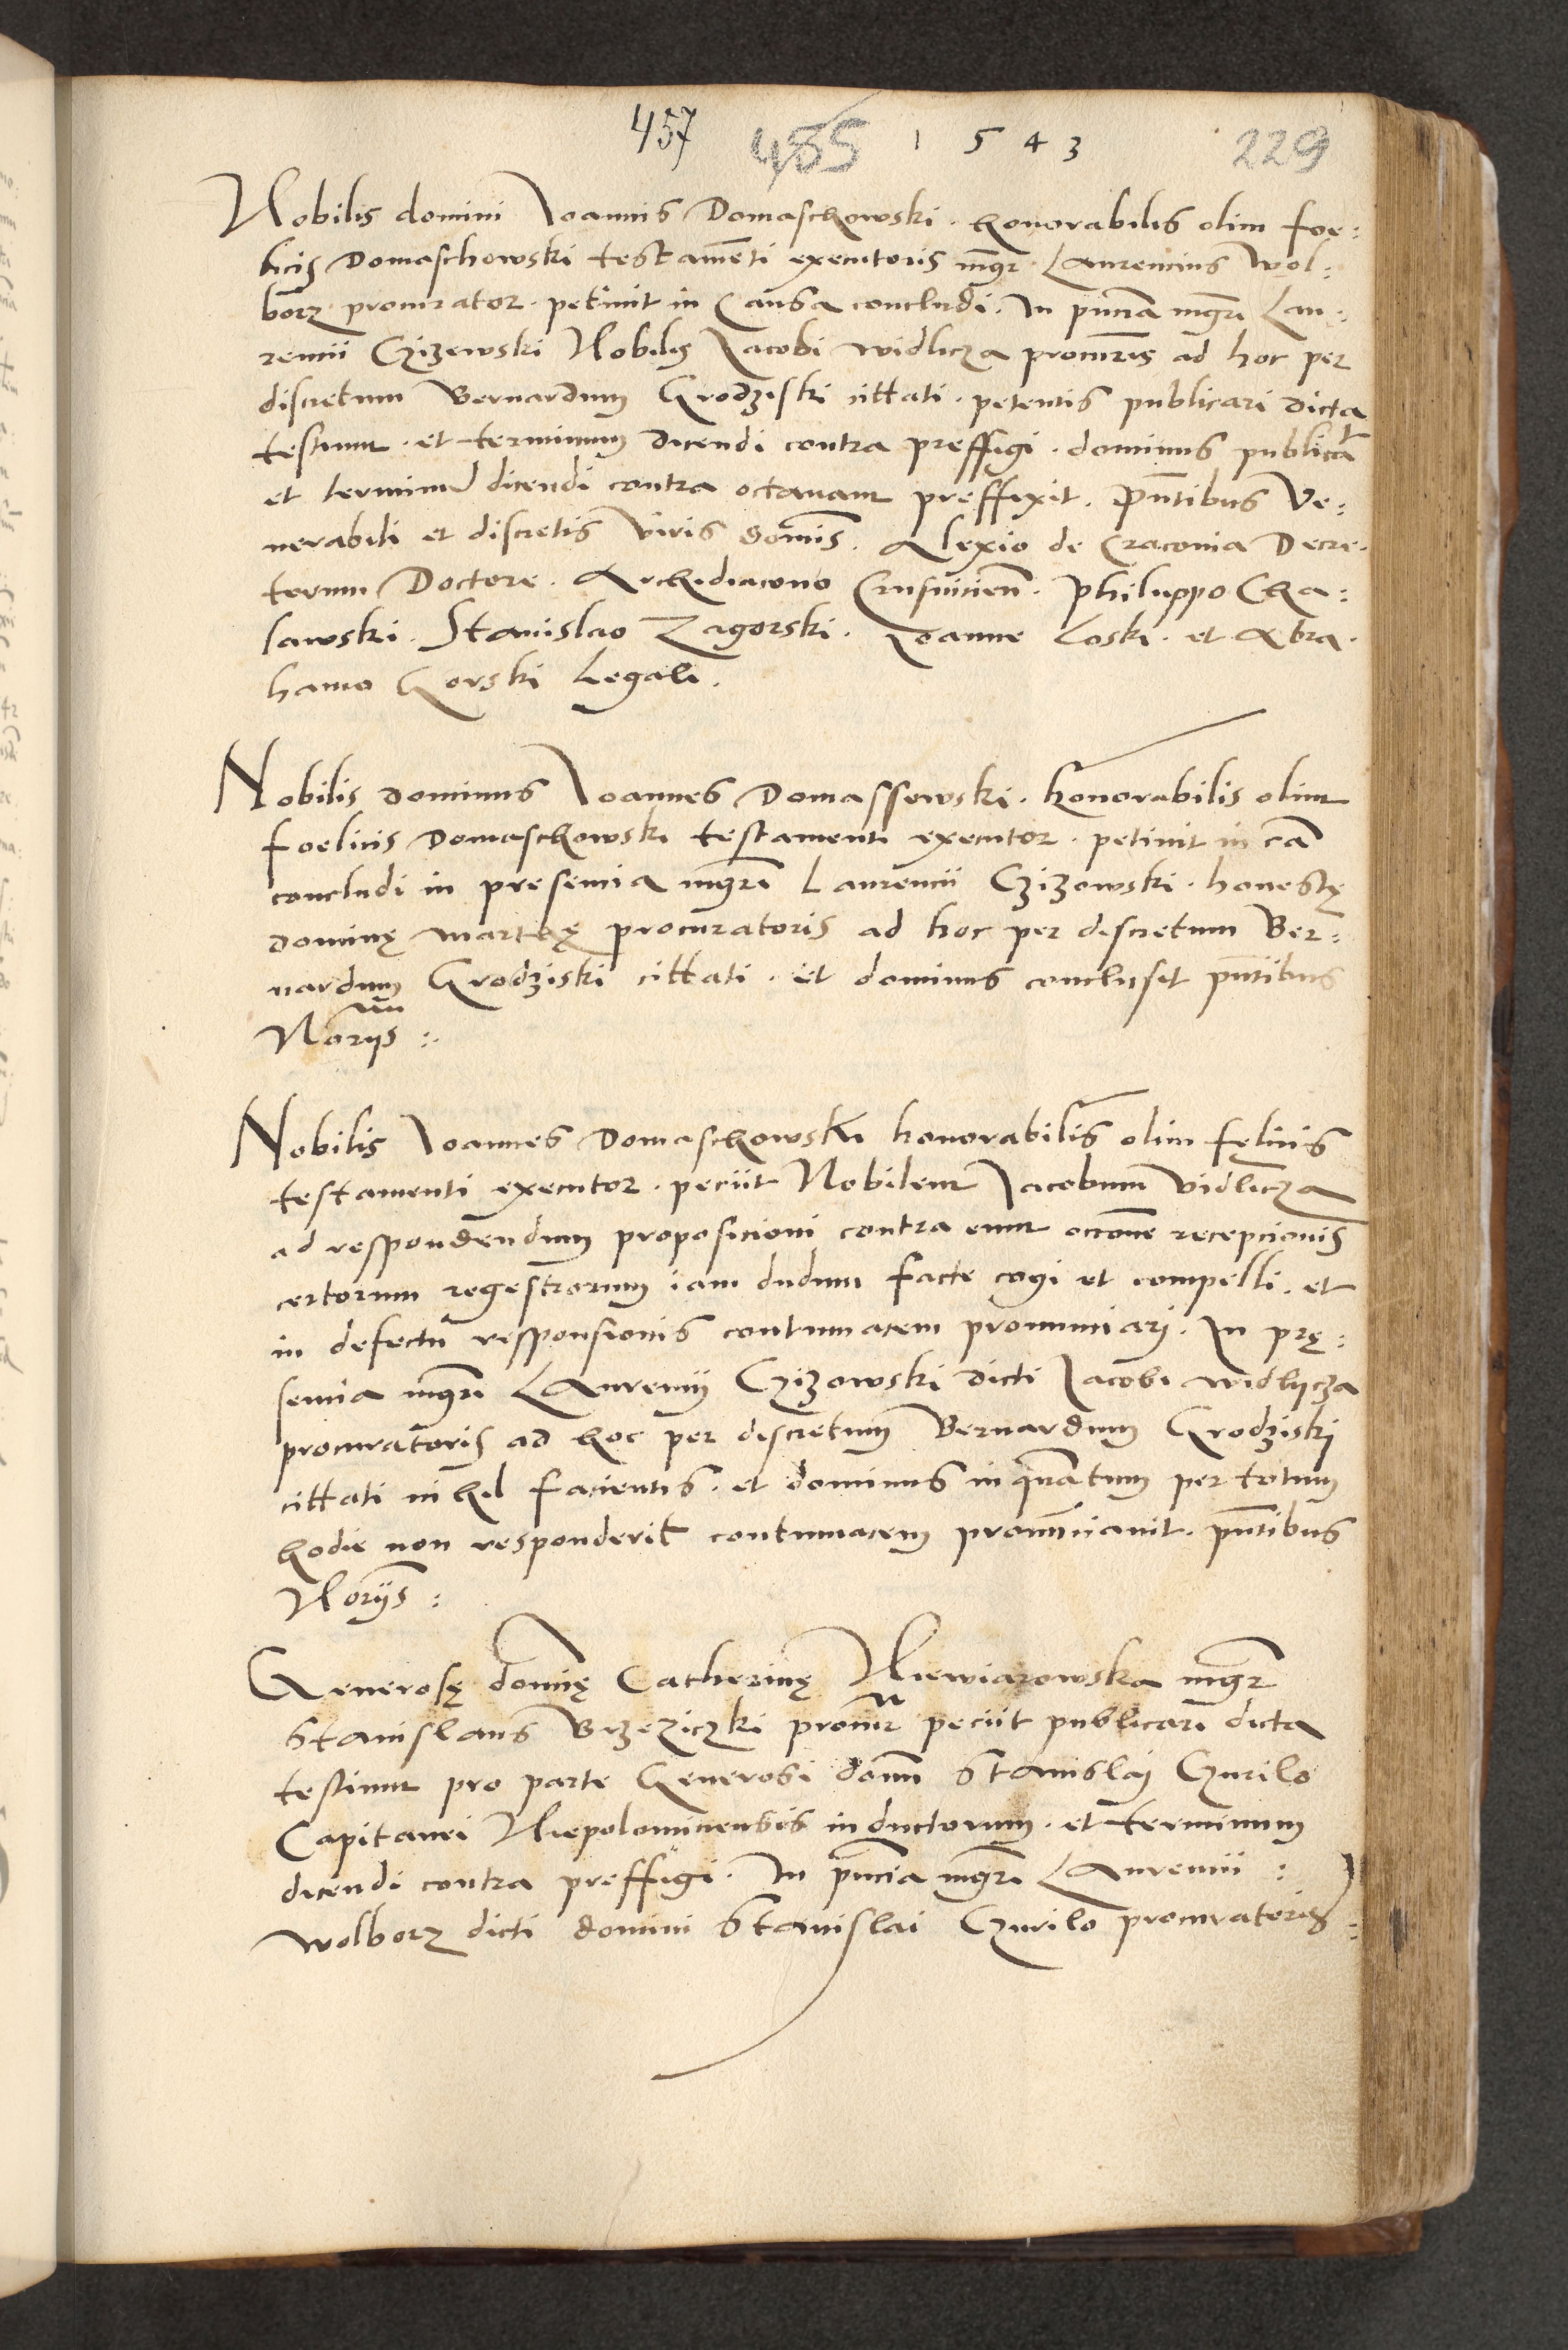 457 455 1543 229
Nobilis domini Ioannis Domaschowski. honorabilis olim foe:
licis Domaschowski testamenti executoris mgr Laurencius Wol:
borz procurator. petiuit in Causa concludi. In pncia mgri Lau:
rencii Czizewski Nobilis Iacobi widlicza procuratoris ad hoc per
discretum Bernardum Grodziski cittati. petentis publicari dicta
testium. et terminum dicendi contra preffigi. dominus publicauit
et terminum dicendi contra octauam preffixit. Pntibus Ve:
nerabili et discretis Viris dominis. Alexio de Cracouia Decre.
torum Doctore. Archidiacono Crusuicien. Philippo Cha:
lawski. Stanislao Zagorski. Ioanne Loski. et Abra.
hamo Gorski Legali.
Nobilis dominus Ioannes Domassewski. honorabilis olim
foelicis Domaschowski testamenti executor. petiuit in ca
concludi in presencia mgri Laurencii Czizowski. honestę
dominę marthę procuratoris ad hoc per discretum Ber:
nardum Grodziski cittati. et dominus conclusit pntibus
Noriis:.
Nobilis Ioannes Domaschowski honorabilis olim fęlicis
testamenti executor. peciit Nobilem Iacobum Vidlicza
ad respondendum proposicioni contra eum occone recepcionis
certorum regestrorum iam dudum facte cogi et compelli. et
in defectu responsionis contumacem pronunciari. In prę:
sencia mgri Laurencij Czizowski dicti Iacobi widlycza
procuratoris ad hoc per discretum Bernardum Grodziskj
cittati nihil facientis. et dominus inquantum per totum
hodie non responderit contumacem pronunciauit. pntibus
Noriis:
Generosę dominę Catherinę Niewiarowska mgr
Stanislaus Brzeziczki procur peciit publicari dicta
testium pro parte Generosi domini Stanislaj Czurilo
Capitanei Niepolominensis inductorum. et terminum
dicendi contra preffigi. In pncia mgri Laurencii:
wolborz dicti domini Stanislai Czurilo procuratoris: